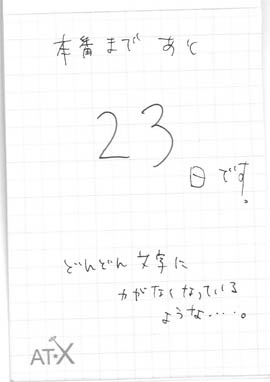 本番まで あと
23
日です。
どんどん 文字に
力がなくなっている
ような....。
AT-X